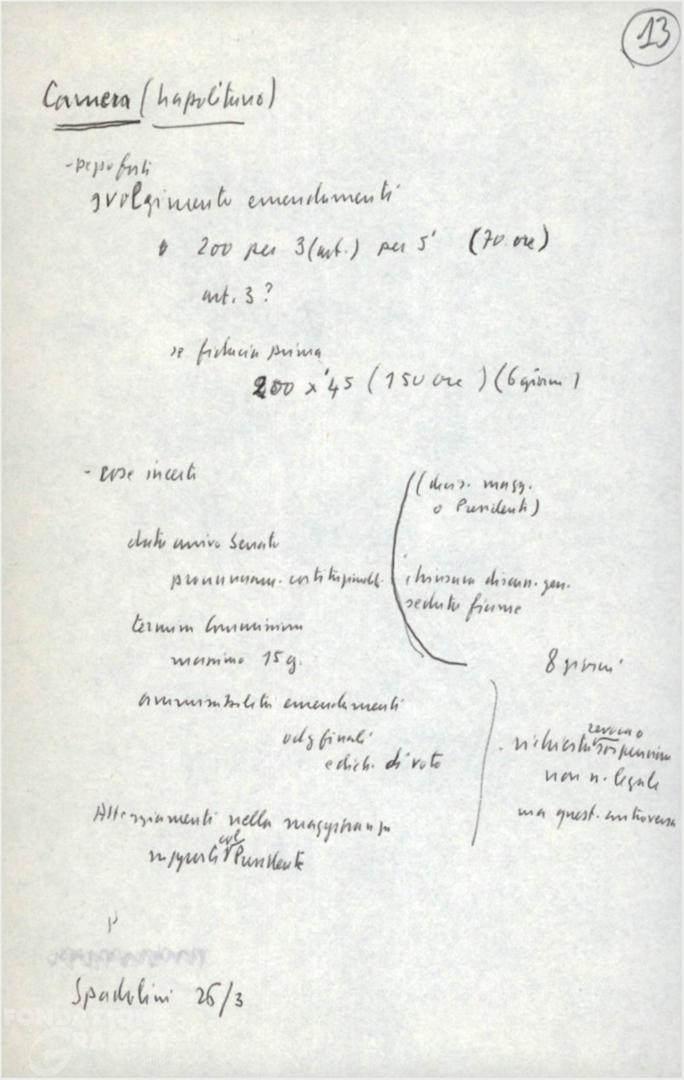 13
Camera (Napolitano)
- 
svolgimento emendamenti
200 per 3 (art.) per 5' (70 ore)
art. 3?
se fiducia prima
200 x '45 (150 ore) (6 giorni)
- cose incerte
(decis. magg.
o Presidenti)
data arrivo Senato
pronunciam. costituzionalit.
chiusura discuss. gen.
sedute fiume
termini Commissioni
massimo 15 g.
8 giorni
ammissibilità emendamenti
odg finali
e dich. di voto
richiesta sospensione
non n. legale
ma quest. controversa
Atteggiamenti nella maggioranza
rapporti col Presidente
Spadolini 26/3
FONDAZIONE
GRAMSCI